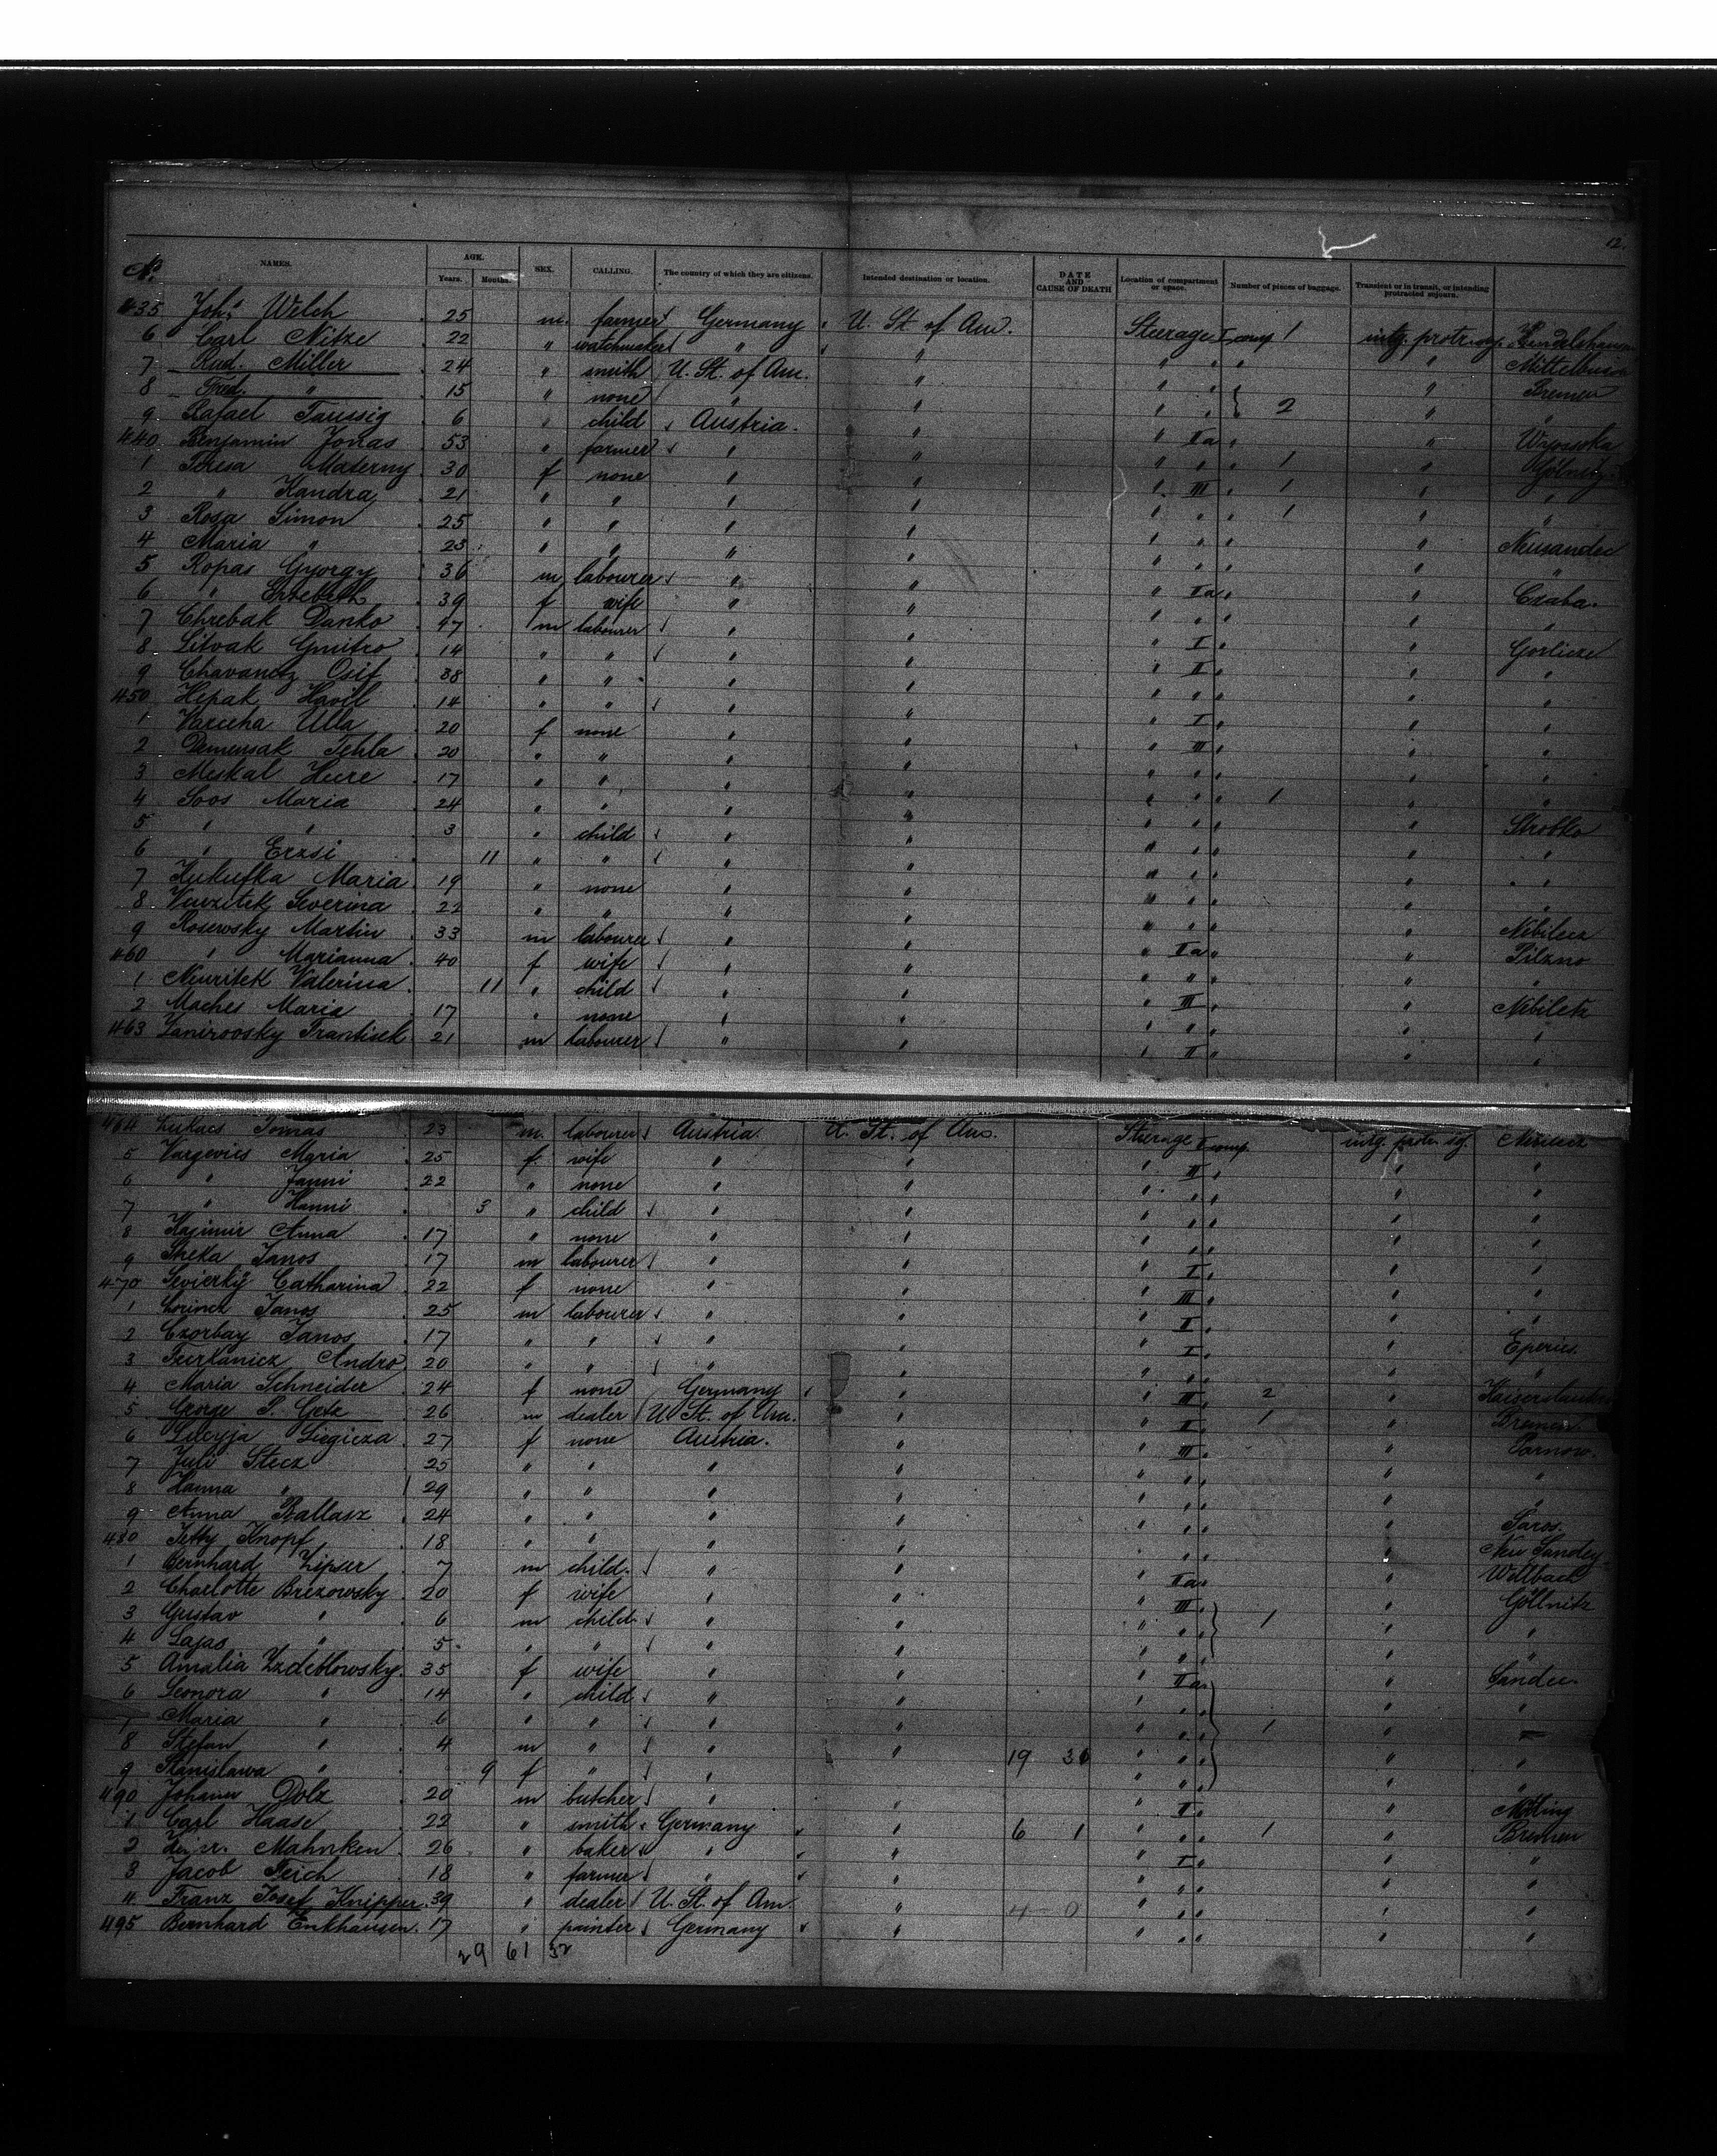 12.
No. NAMES. AGE. Years. Months. SEX. CALLING. The country of which they are citizens. Intended destination or location. DATE AND CAUSE OF DEATH Location of compartment or space. Number of pieces of baggage. Transient or in transit, or intending protracted sojourn.
435 Johs Welch 25 m. farmer Germany U. St. of Am. Steerage I comp 1
6 Carl Nitze 22 " watchmaker " "
7 Rud. Miller 24 " smith U. St. of Am. " "
8 Fred. " 15 " none " " 2 " Bremen
9 Rafael Taussig 6 " child Austria. " " "
440 Benjamin Jonas 53 " farmer " " " IIa " "
1 Teresa Materny 30 f none " " " " 1 "
2 " Kandra 21 " " " " " III " 1 " "
3 Rosa Simon 25 " " " " " " 1 " "
4 Maria " 23 " " " " " " " Neusandec
5 Ropas Gyorgy 36 m labourer " " " " " "
6 " Erzebeth 39 f wife " " " IIa " " Czaba.
7 Chrebak Danko 47 m labourer " " " " " "
8 Litvak Gmitro 14 " " " " " I " " Gorlicze
9 Chavanetz Osif 38 " " " " " II " " "
450 Hipak Havil 14 " " " " " " " "
1 Varecha Ulla 20 f none " " " I " " "
2 Demensak Tekla 20 " " " " " III " " "
3 Meskal Heere 17 " " " " " " " "
4 Soos Maria 24 " " " " " " 1 " "
5 " " 3 " child " " " " " Stropko
6 " Erzsi 11 " " " " " " " "
7 Kukufka Maria 19 " none " " " " " "
8 Vurzitek Severina 22 " " " " " " " "
9 Rosewsky Martin 33 m labourer " " " " " Nibilecz
460 " Marianna 40 f wife " " " IIa " " Pilzno
1 Neuritek Valerina 11 " child " " " " " "
2 Maches Maria 17 " none " " " III " " Nibiletz
463 Janiroosky Frantisek 21 m labourer " " " II " " "
464 Lukacs Tomas 23 m. labourer Austria U. St. of Am. Steerage II comp.
5 Vargevics Maria 25 f. wife " " " III " " "
6 " Janni 22 " none " " " " " "
7 " Hanni 3 " child " " " " " "
8 Kazimir Anna 17 " none " " " " " "
9 Sheka Janos 17 m labourer " " " I " " "
470 Sevierky Catharina 22 f none " " " III " " "
1 Lorincz Janos 25 m labourer " " " II " " "
2 Czorbay Janos 17 " " " " " I " " Eperies.
3 Andro 20 " " " " " " " "
4 Maria Schneider 24 f none Germany " " III " 2 "
5 George P. Getz 26 m dealer U. St. of Am. " " II " 1 " Bremen
6 Lucyja Liegicza 27 f none Austria. " " III " " Tarnow.
7 Juli Stecz 25 " " " " " " " "
8 Hanna " 29 " " " " " " " "
9 Anna Ballasz 24 " " " " " " " Saros.
480 Jetty Knopf 18 " " " " " " " Neu Sandez
1 Bernhard Zipser 7 m child. " " " IIa " "
2 Charlotte Brezowsky 20 f wife " " " III " 1 " Göllnitz
3 Gustav " 6 m child " " " " " "
4 Lajas " 5 " " " " " " " "
5 Amalia Zzdeblowsky 35 f wife " " " IIa " " Sandec
6 Leonora " 14 " child " " " " " "
7 Maria " 6 " " " " " " 1 " "
8 Stefan " 4 m " " " 19 36 " " " "
9 Stanislawa " 9 f " " " " " " "
490 Johann Dolz 20 m butcher " " " II " "
1 Carl Haase 22 " smith Germany " 6 1 " " 1 " Bremen
2 Mahnken 26 " baker " " " I " " "
3 Jacob Teich 18 " farmer " " " " " "
4 Franz Josef Knipper. 39 " dealer U. St. of Am. " 4 0 " " " "
495 Bernhard Enkhausen. 17 " painter Germany " " " " "
29 61 32